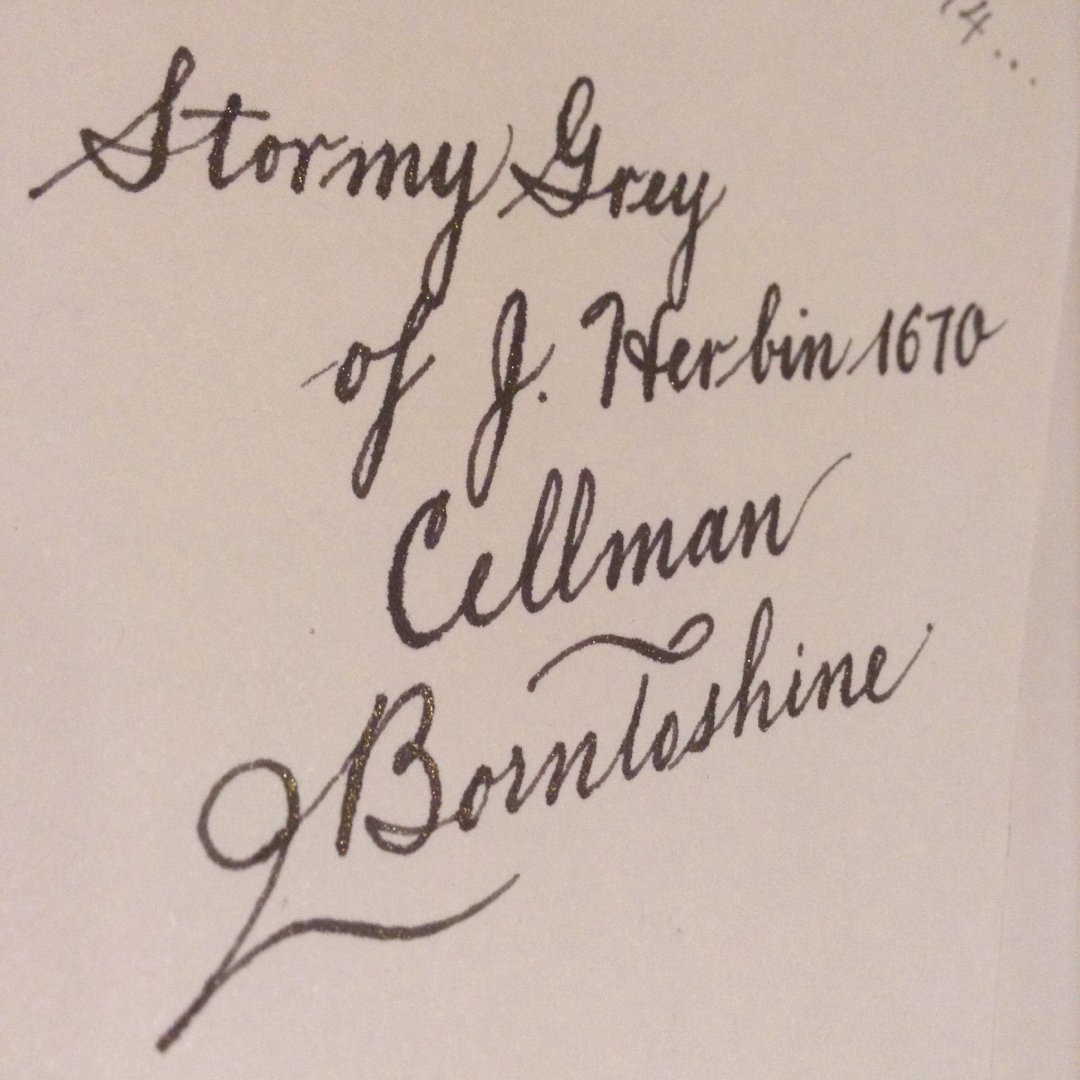 14...
Stormy Grey
of J. Herbin 1670
Cellman
Borntoshine